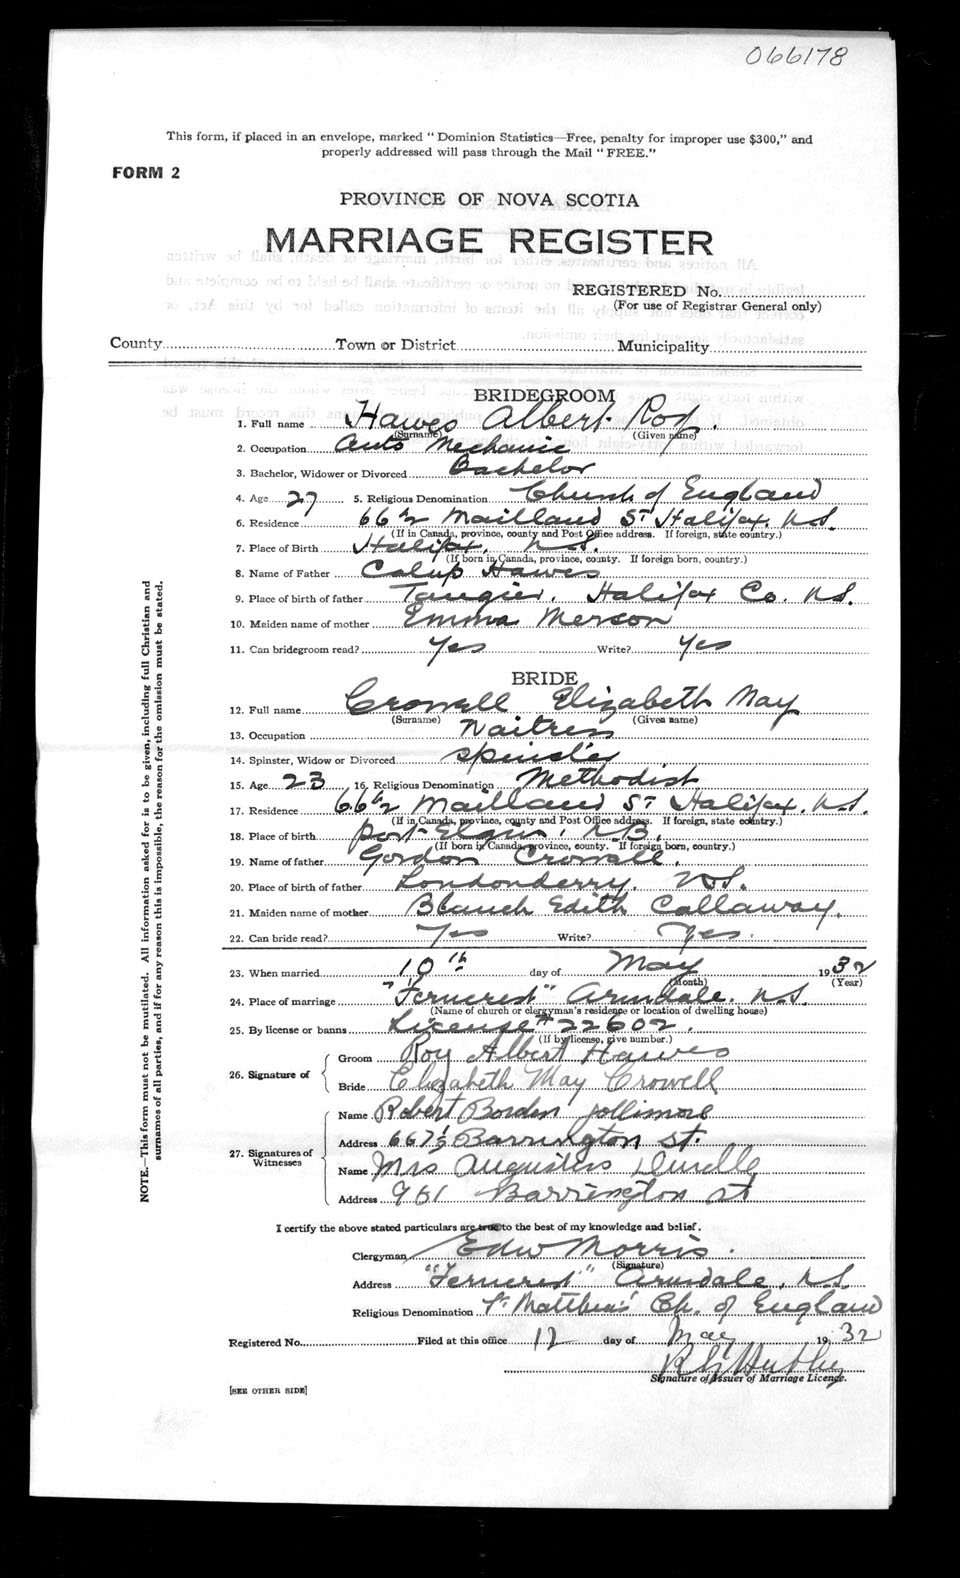 066178
This form, if placed in an envelope, marked "Dominion Statistics—Free, penalty for improper use $300," and
properly addressed will pass through the Mail "FREE."
FORM 2
PROVINCE OF NOVA SCOTIA
MARRIAGE REGISTER
REGISTERED No.
(For use of Registrar General only)
County Town or District Municipality
BRIDEGROOM
1. Full name Hawes Albert Roy.
(Surname) (Given name)
2. Occupation Auto Mechanic
3. Bachelor, Widower or Divorced Bachelor
4. Age 27 5. Religious Denomination Church of England
6. Residence 66½ Maitland St Halifax. N.S.
(If in Canada, province, county and Post Office address. If foreign, state country.)
7. Place of Birth Halifax, N.S.
(If born in Canada, province, county. If foreign born, country.)
8. Name of Father Calup Hawes
9. Place of birth of father Tangier. Halifax Co. N.S.
10. Maiden name of mother Emma Merson
11. Can bridegroom read? Yes Write? Yes
BRIDE
12. Full name Crowell Elizabeth May
(Surname) (Given name)
13. Occupation Waitress
14. Spinster, Widow or Divorced Spinster
15. Age 23 16. Religious Denomination Methodist
17. Residence 66½ Maitland St Halifax. N.S.
(If in Canada, province, county and Post Office address. If foreign, state country.)
18. Place of birth Port Elgin, N.B.
(If born in Canada, province, county. If foreign born, country.)
19. Name of father Gordon Crowell.
20. Place of birth of father Londonderry. N.S.
21. Maiden name of mother Blanch Edith Callaway.
22. Can bride read? Yes Write? Yes.
23. When married 10th day of May 1932
(Month) (Year)
24. Place of marriage "Ferncrest" Armdale. N.S.
(Name of church or clergyman's residence or location of dwelling house)
25. By license or banns License # 22602.
(If by license, give number.)
26. Signature of Groom Roy Albert Hawes
Bride Elizabeth May Crowell
27. Signatures of Witnesses Name Robert Borden Jollimore
Address 667½ Barrington St.
Name Mrs Augusters
Address 961 Barrington St
I certify the above stated particulars are true to the best of my knowledge and belief.
Clergyman Edw Morris.
(Signature)
Address "Ferncrest" Armdale, N.S.
Religious Denomination St Matthias' Ch. of England
Registered No. Filed at this office 12 day of May 1932
Signature of Issuer of Marriage Licence.
[SEE OTHER SIDE]
NOTE.—This form must not be mutilated. All information asked for is to be given, including full Christian and
surnames of all parties, and if for any reason this is impossible, the reason for the omission must be stated.